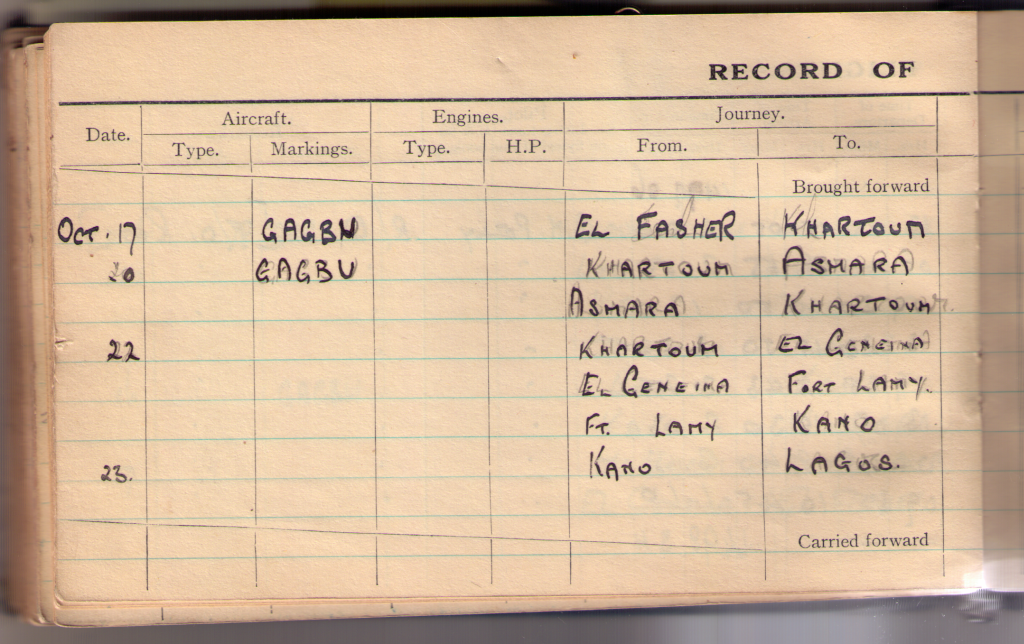 RECORD OF
Date. Aircraft. Engines. Journey.
Type. Markings. Type. H.P. From. To.
Brought forward
Oct. 17 GAGBN EL FASHER KHARTOUM
20 GAGBU KHARTOUM ASMARA
ASMARA KHARTOUM
22 KHARTOUM EL GENEINA
EL GENEINA FORT LAMY.
FT. LAMY KANO
23. KANO LAGOS.
Carried forward